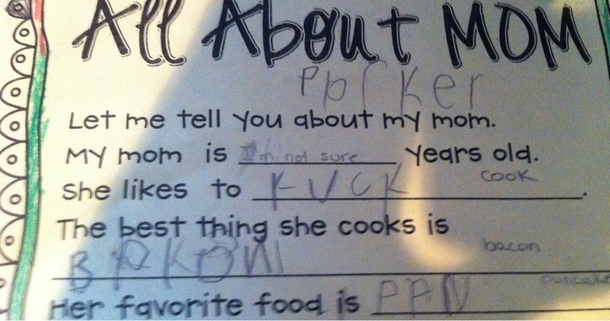 All About MOM
Parker
Let me tell you about my mom.
My mom is I'm not sure years old.
cook
She likes to KUCK.
The best thing she cooks is
bacon
BAKON
pancake
Her favorite food is PAN